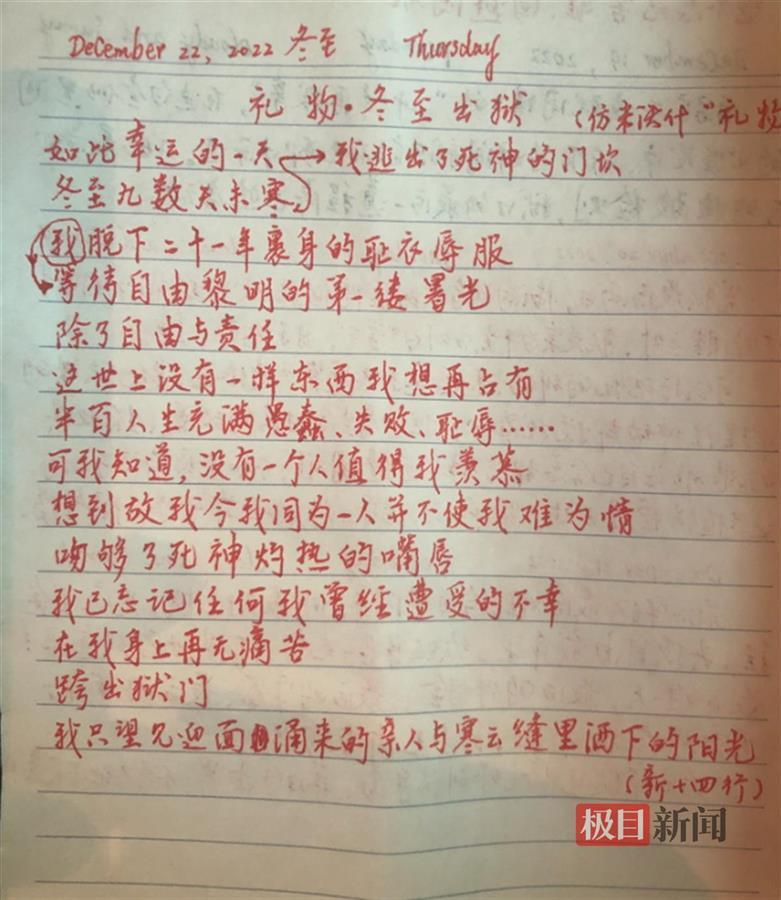 December 22, 2022 冬至 Thursday
礼物·冬至出狱 (仿米沃什"礼物
如此幸运的一天 我逃出了死神的门坎
冬至九数天未寒,
我脱下二十一年裹身的耻衣辱服
等待自由黎明的第一缕署光
除了自由与责任
这世上没有一样东西我想再占有
半百人生充满愚蠢、失败、耻辱……
可我知道,没有一个人值得我羡慕
想到故我今我同为一人并不使我难为情
吻够了死神灼热的嘴唇
我已忘记任何我曾经遭受的不幸
在我身上再无痛苦
跨出狱门
我只望见迎面涌来的亲人与寒云缝里洒下的阳光
(新十四行)
极目新闻